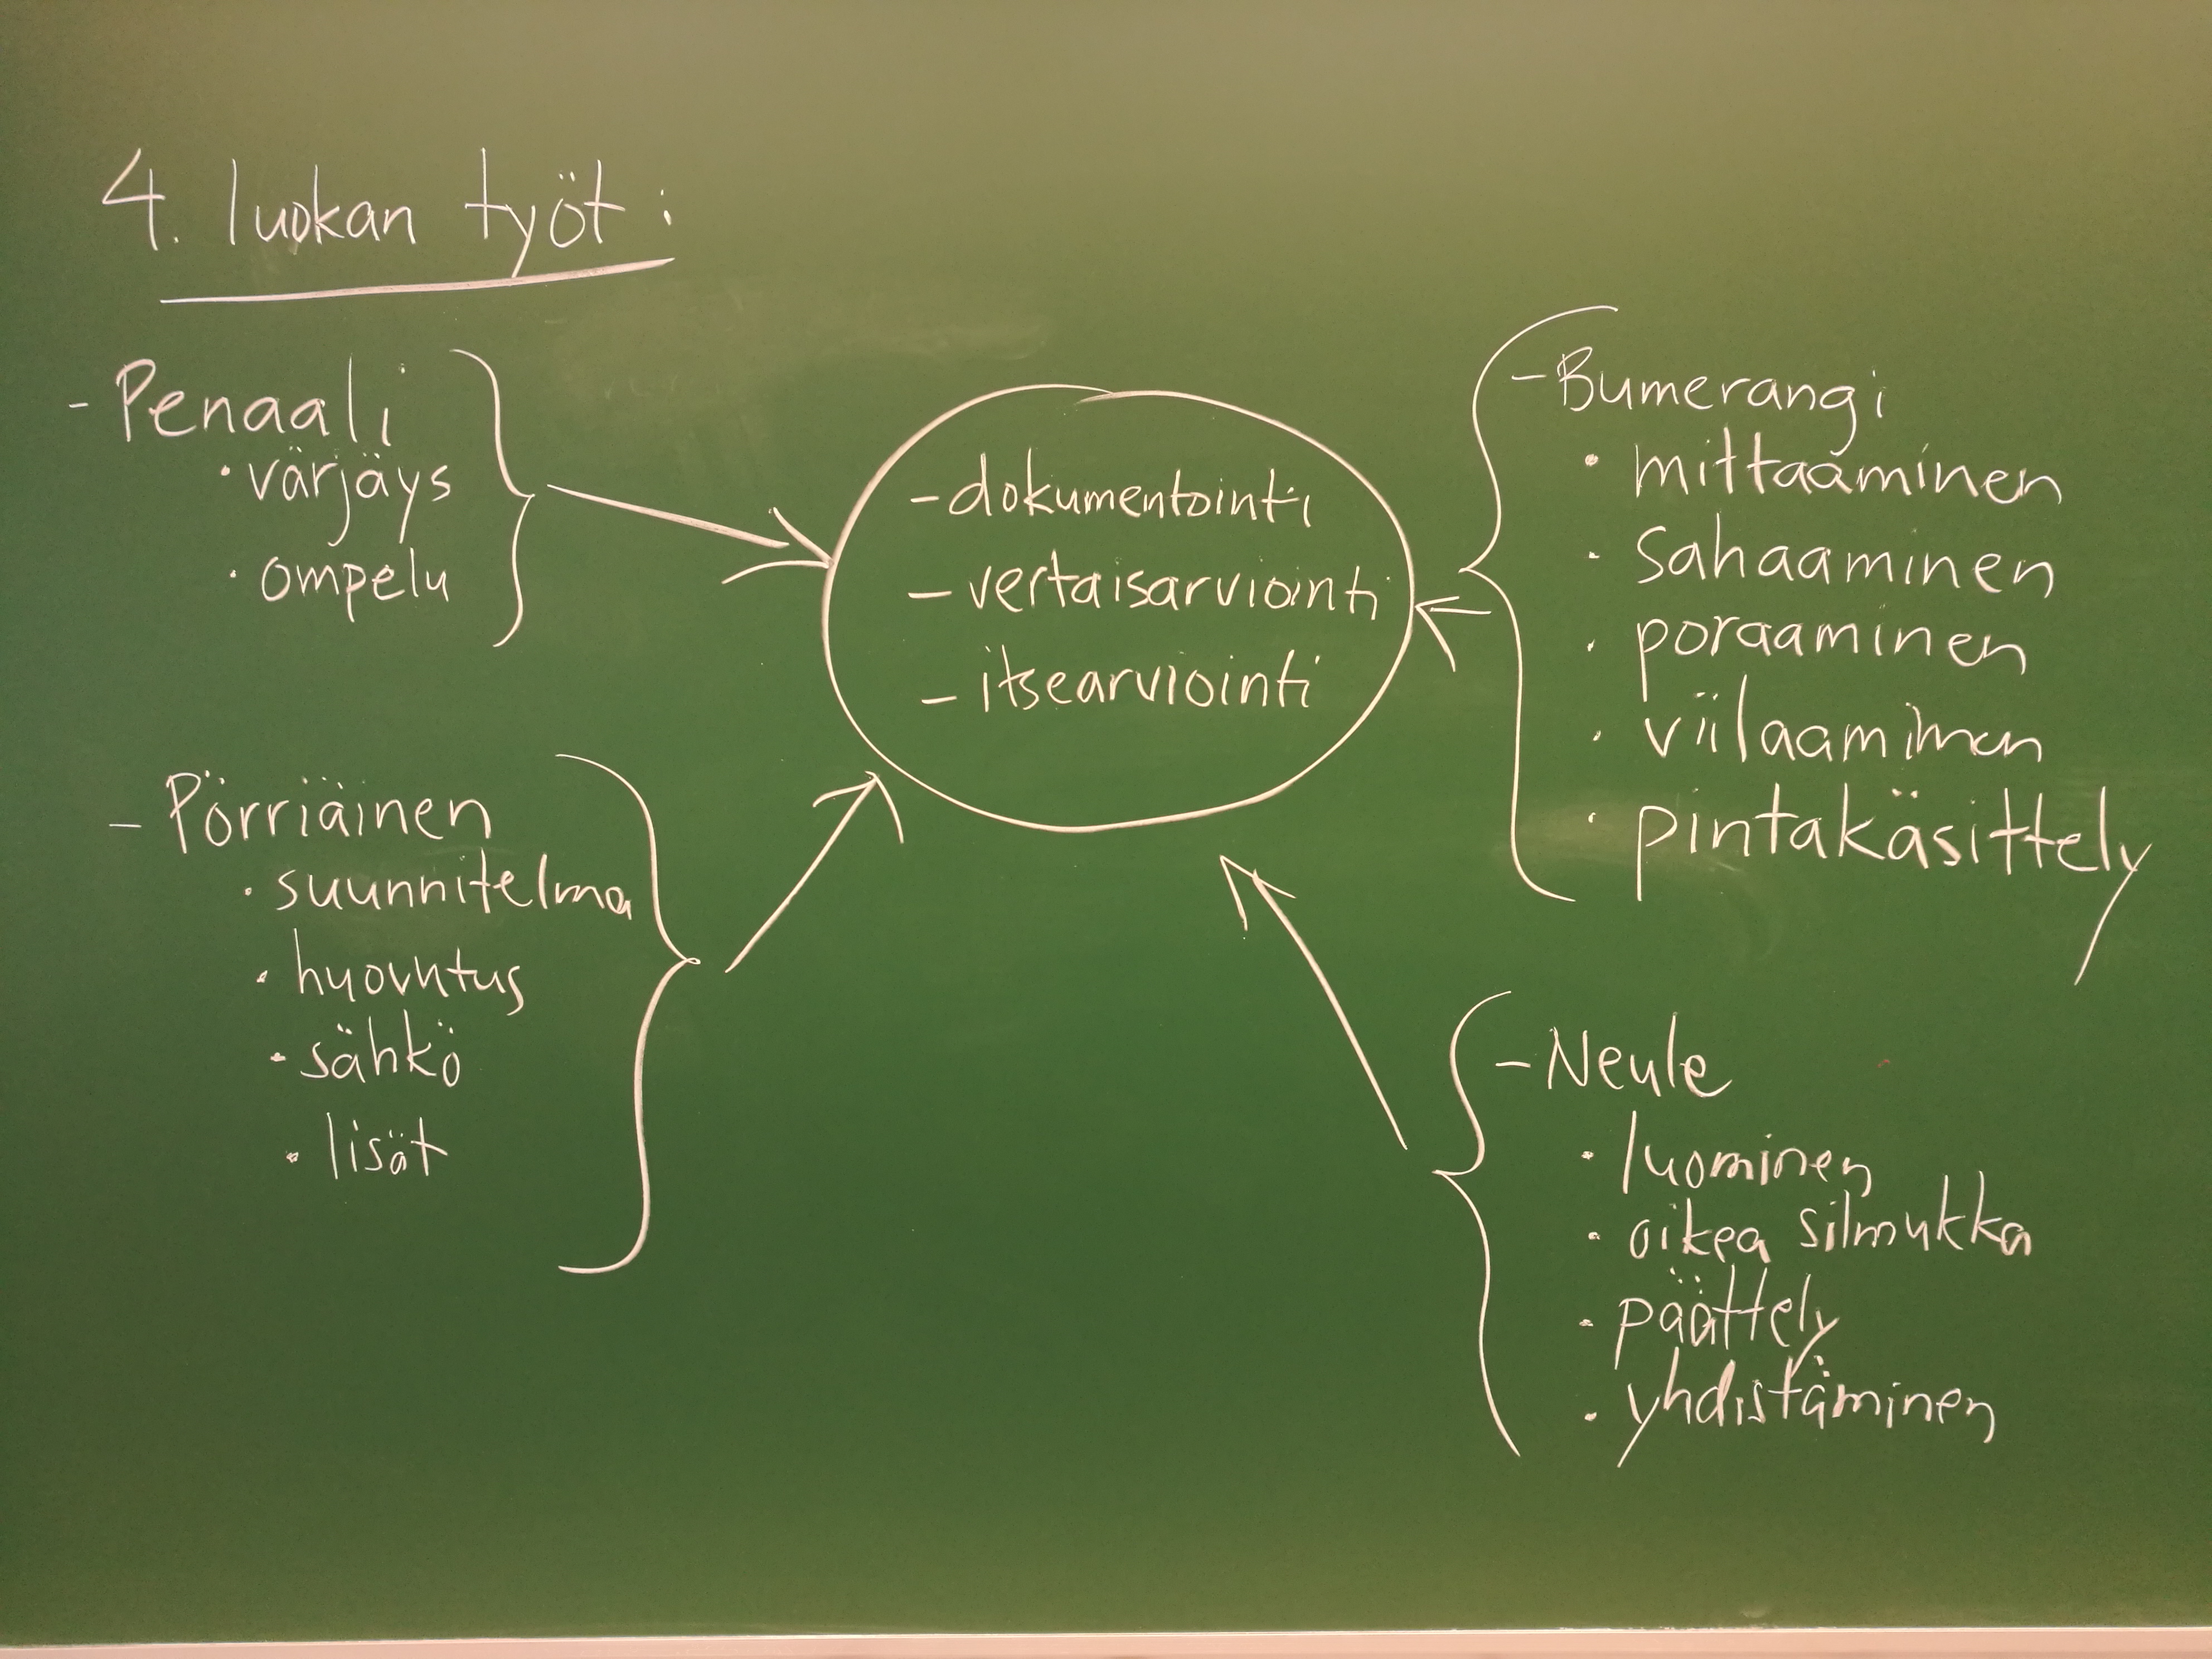 4. luokan työt:
- Penaali
· värjäys
· ompelu
- Pörriäinen
· suunnitelma
· huovutus
· sähkö
· lisät
- dokumentointi
- vertaisarviointi
- itsearviointi
- Bumerangi
· mittaaminen
· sahaaminen
· poraaminen
· viilaaminen
· pintakäsittely
- Neule
· luominen
· oikea silmukka
· päättely
· yhdistäminen